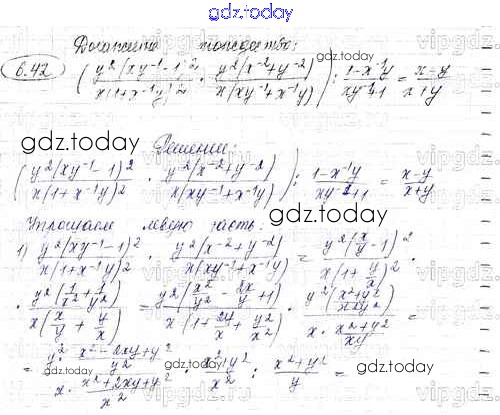 gdz.today
Докажите тождество:
6.42 (y²(xy⁻¹-1)²/x(1+x⁻¹y)² · y²(x⁻²+y⁻²)/x(xy⁻¹+x⁻¹y)) : 1-x⁻¹y/xy⁻¹+1 = x-y/x+y
gdz.today
Решение:
(y²(xy⁻¹-1)²/x(1+x⁻¹y)² · y²(x⁻²+y⁻²)/x(xy⁻¹+x⁻¹y)) : 1-x⁻¹y/xy⁻¹+1 = x-y/x+y
gdz.today
Упрощаем левую часть:
1) y²(xy⁻¹-1)²/x(1+x⁻¹y)² · y²(x⁻²+y⁻²)/x(xy⁻¹+x⁻¹y) = y²(x/y-1)²/x(1+y/x)² ·
· y²(1/x²+1/y²)/x(x/y+y/x) = y²(x²/y²-2x/y+1)/x(1+2y/x+y²/x²) · y²(x²+y²/x²y²)/x·x²+y²/xy =
= y²·x²-2xy+y²/y²/x·x²+2xy+y²/x² · x²+y²/x² : x²+y²/y =
gdz.today
gdz.today